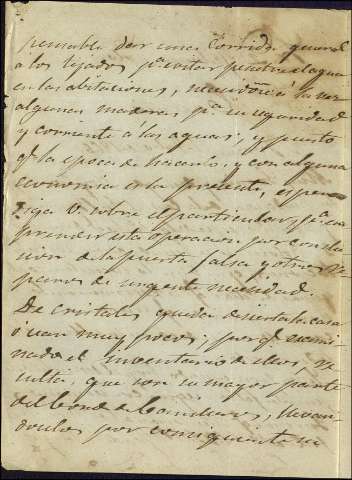 pensable dar una corrida general
a los tejados pa. evitar penetre el agua
en las abitaciones, a la vez
algunas maderas pa. su seguridad
y corriente a las aguas, y puesto
qe. la epoca de hacerlo, y con alguna
economia es la presente, espero
diga V. sobre el particular, si
prender esta operacion por conclu
sion de la puerta falsa y otros re
paros de urgente necesidad.
De cristales queda desierta la casa
o van muy pocos, porqe. exami
nado el inventario de ellos, re
sulta, que son su mayor parte
del Conde de llevan
doselos por consiguiente se